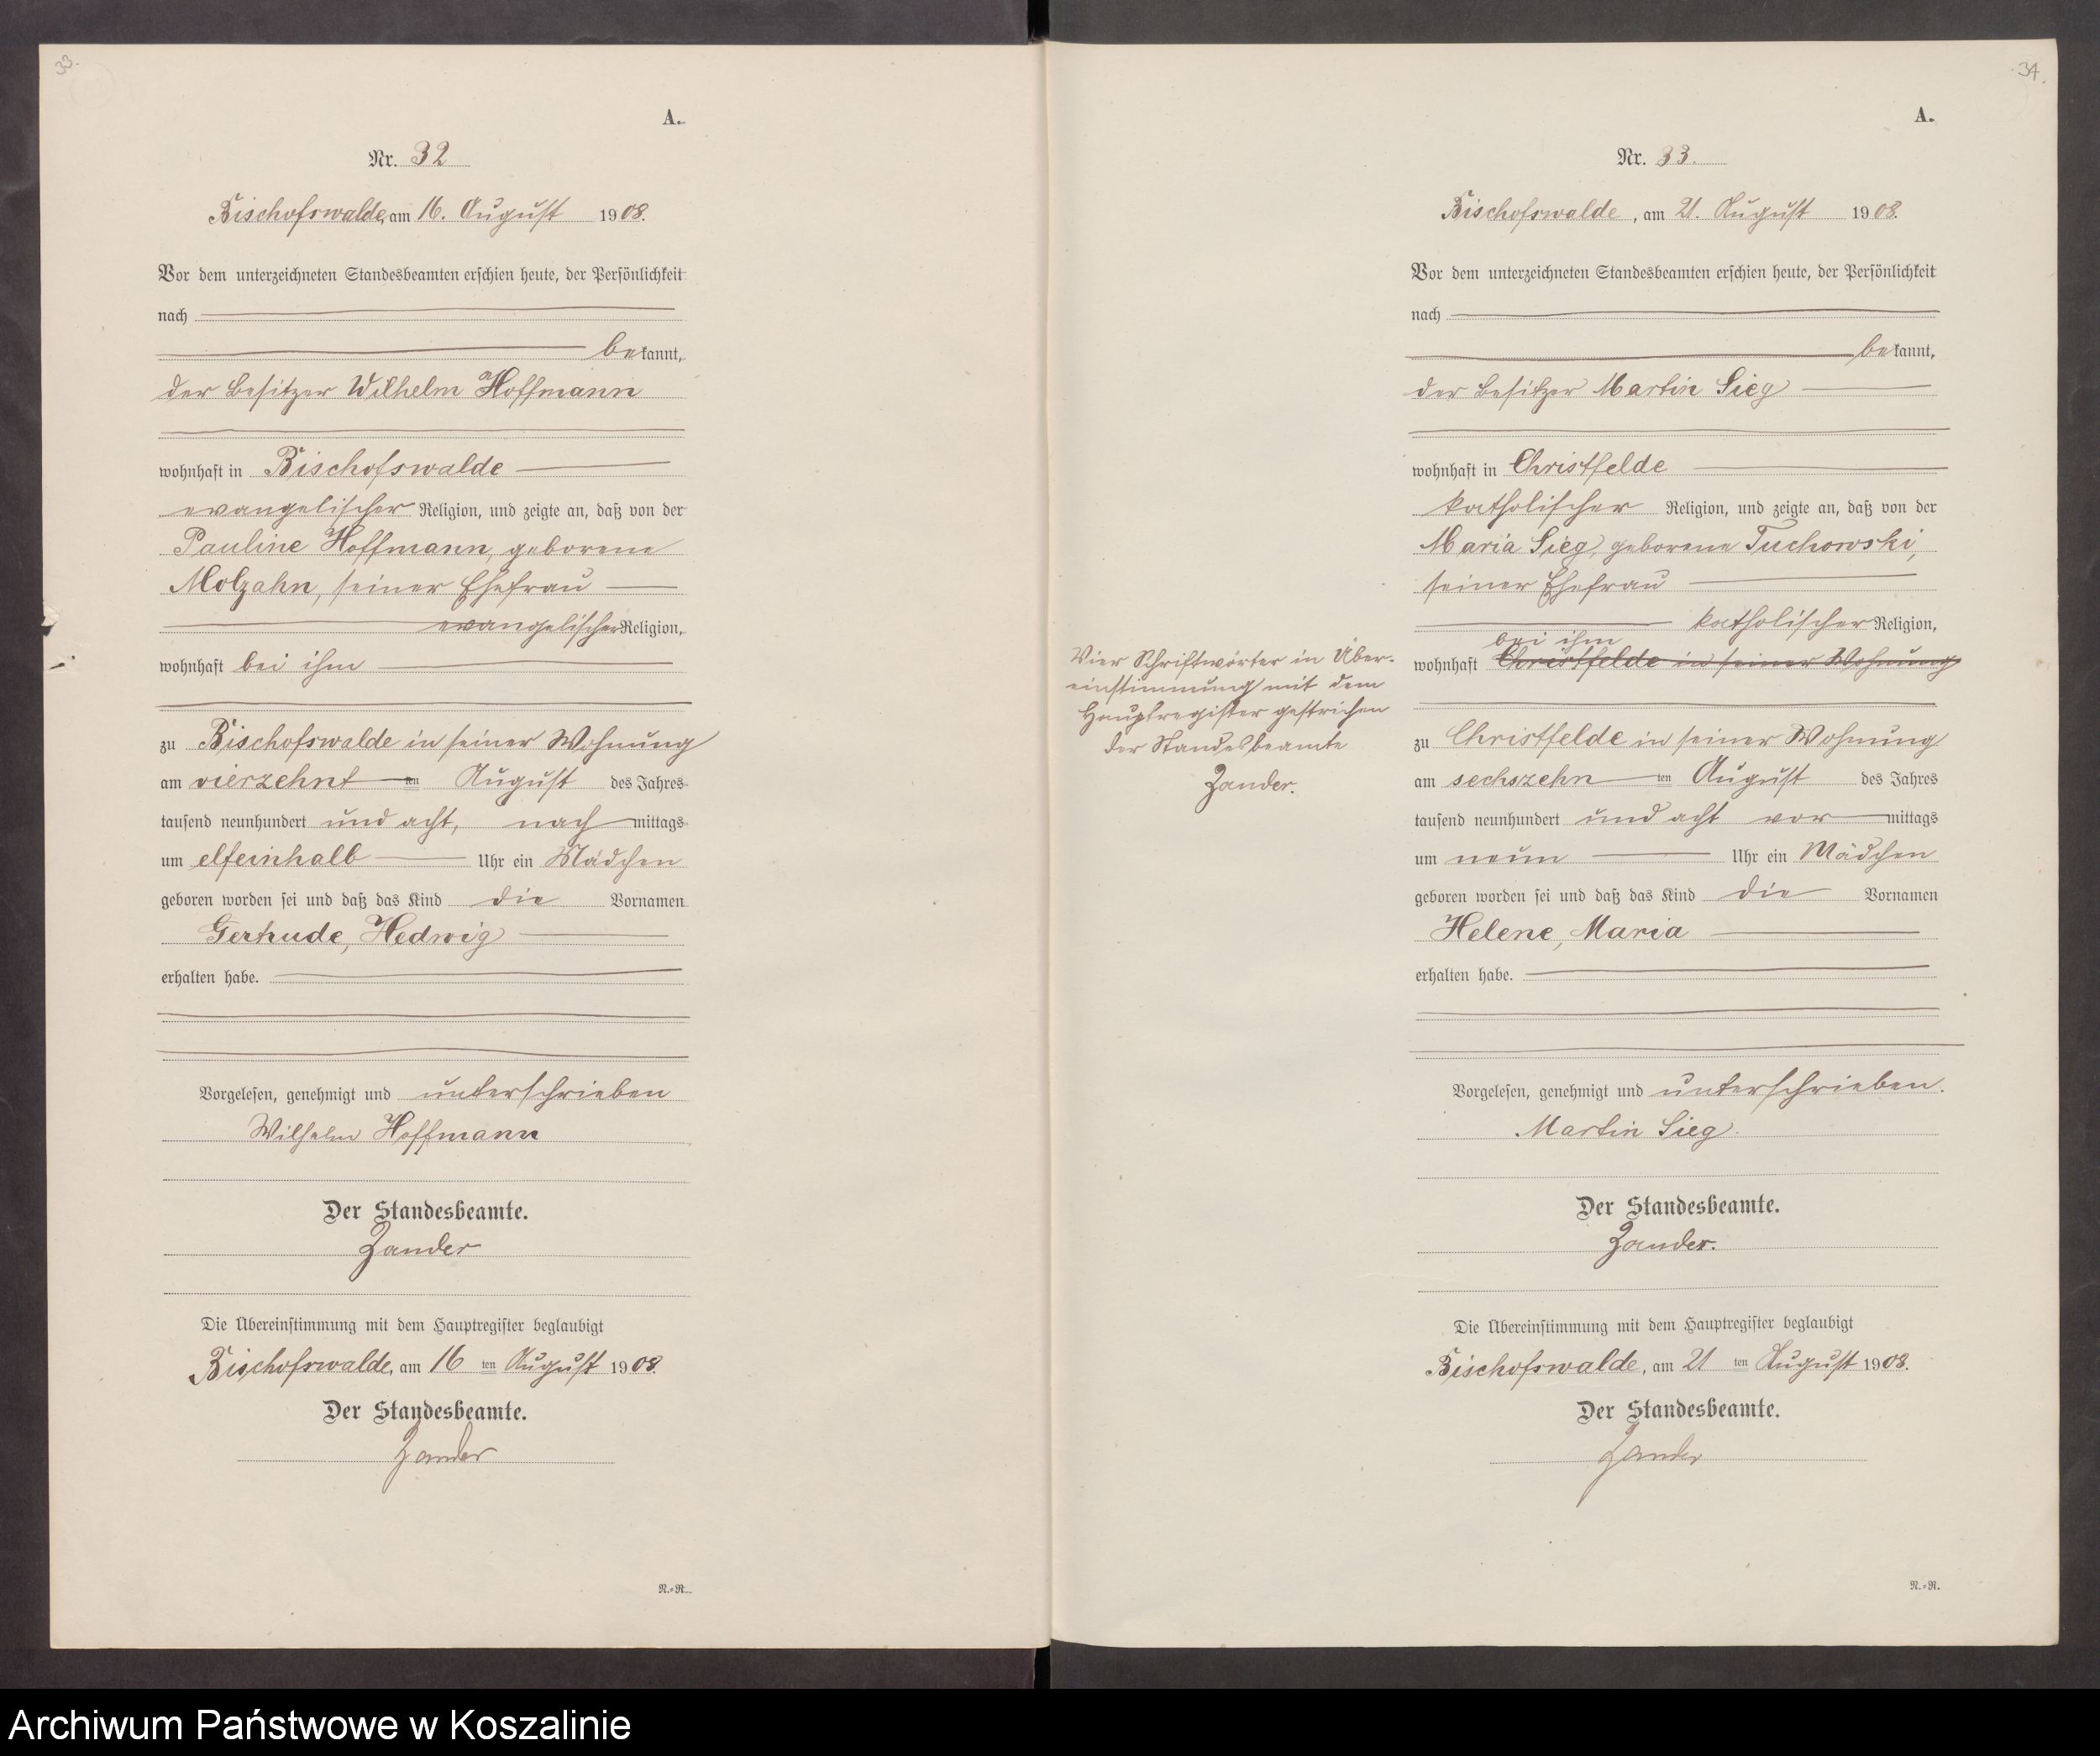 33.
A.
Nr. 32
Bischofswalde, am 16. August 1908.
Vor dem unterzeichneten Standesbeamten erschien heute, der Persönlichkeit
nach
bekannt,
der Besitzer Wilhelm Hoffmann
wohnhaft in Bischofswalde
evangelischer Religion, und zeigte an, daß von der
Pauline Hoffmann, geborene
Molzahn, seiner Ehefrau
evangelischer Religion,
wohnhaft bei ihm
zu Bischofswalde in seiner Wohnung
am vierzehnt ten August des Jahres
tausend neunhundert und acht, nach mittags
um elfeinhalb Uhr ein Mädchen
geboren worden sei und daß das Kind die Vornamen
Gertrude, Hedwig
erhalten habe.
Vorgelesen, genehmigt und unterschrieben
Wilhelm Hoffmann
Der Standesbeamte.
Zander
Die Übereinstimmung mit dem Hauptregister beglaubigt
Bischofswalde, am 16 ten August 1908.
Der Standesbeamte.
Zander
N.=R.
34.
A.
Nr. 33.
Bischofswalde, am 21. August 1908.
Vor dem unterzeichneten Standesbeamten erschien heute, der Persönlichkeit
nach
bekannt,
der Besitzer Martin Sieg
wohnhaft in Christfelde
katholischer Religion, und zeigte an, daß von der
Maria Sieg, geborene Tuchowski,
seiner Ehefrau
katholischer Religion,
bei ihm
wohnhaft Christfelde in seiner Wohnung
zu Christfelde in seiner Wohnung
am sechszehn ten August des Jahres
tausend neunhundert und acht vor mittags
um neun Uhr ein Mädchen
geboren worden sei und daß das Kind die Vornamen
Helene, Maria
erhalten habe.
Vorgelesen, genehmigt und unterschrieben.
Martin Sieg.
Der Standesbeamte.
Zander.
Die Übereinstimmung mit dem Hauptregister beglaubigt
Bischofswalde, am 21 ten August 1908.
Der Standesbeamte.
Zander
N.=R.
Vier Schriftwörter in Über-
einstimmung mit dem
Hauptregister gestrichen
der Standesbeamte
Zander.
Archiwum Państwowe w Koszalinie